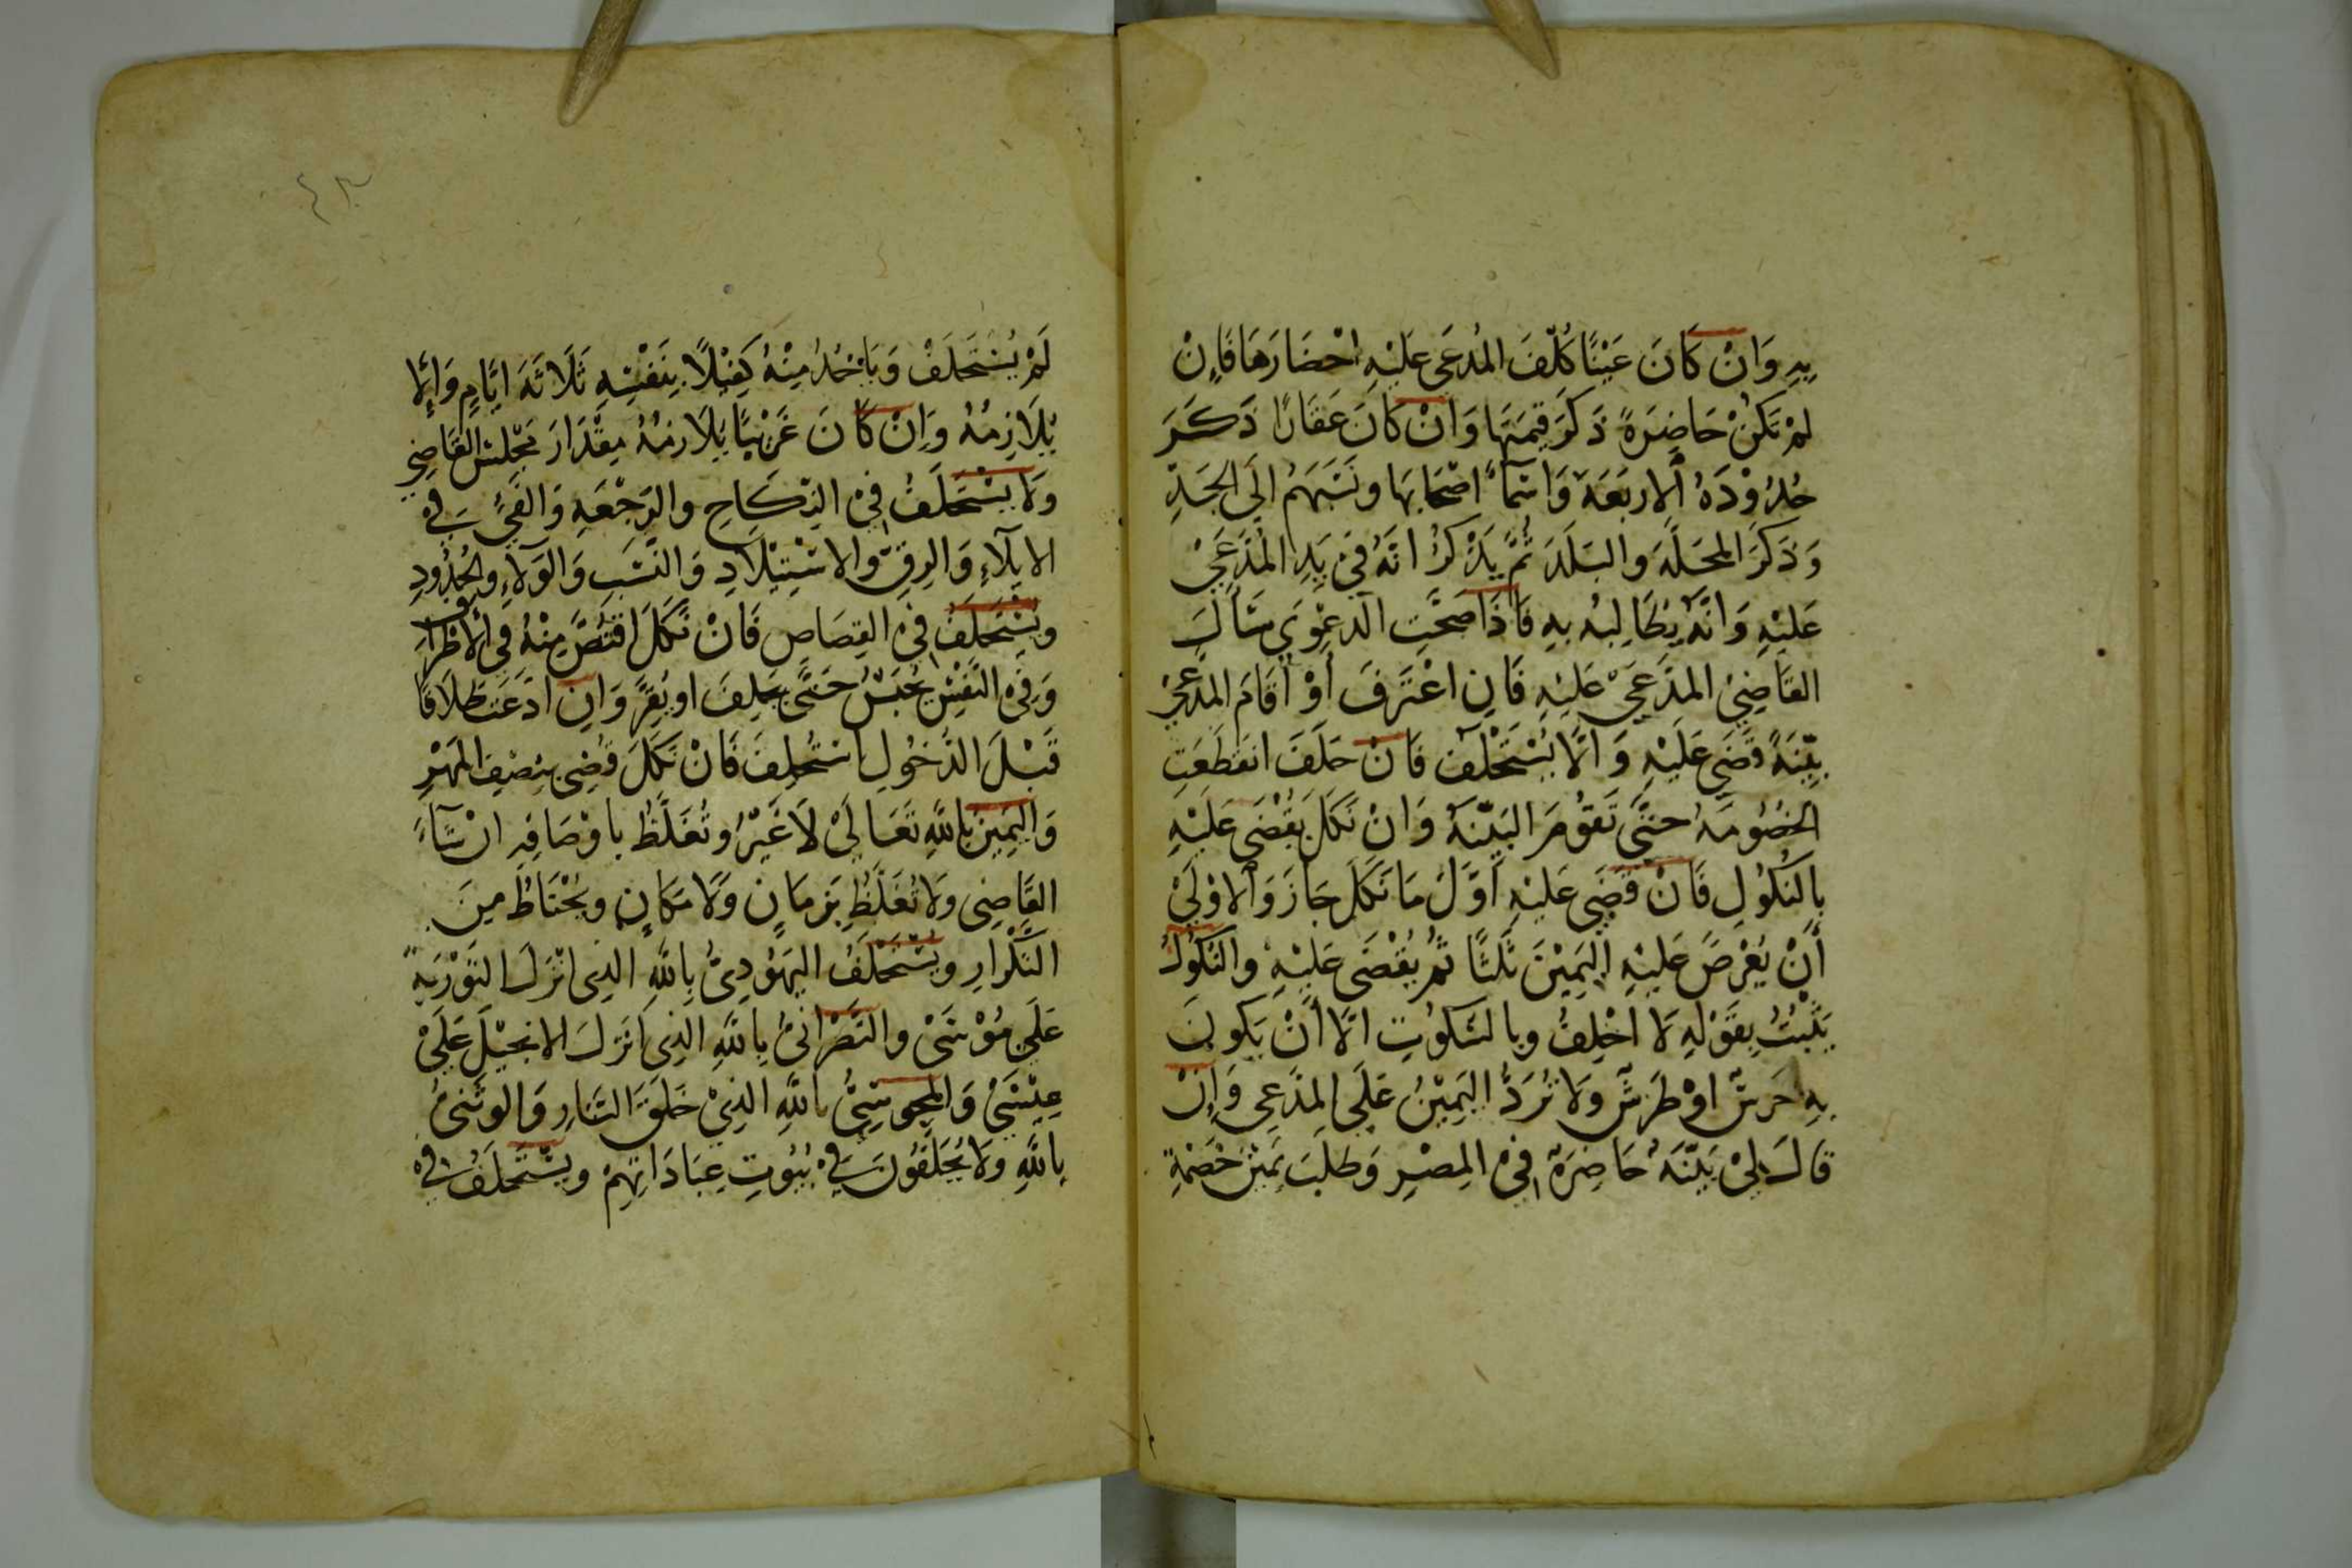 بِهِ وَانْ كَانَ عَيْنًا كُلِّفَ المُدعَى عَلَيْهِ احْضَارَهَا فَاِنْ
لمْ تَكُنْ حَاضِرَةً ذَكَرَ قِيمَتَهَا وَانْ كَانَ عَقَارًا ذَكَرَ
حُدُوْدَهُ الاربَعَة وَاسْمَاءَ اصْحَابِهَا ونَسَبَهُم الَى الجَدِّ
وَذَكَرَ المحَلَّهَ والبَلَدَ ثُمَّ يَذْكُرُ انَّهُ فيْ يَدِ المُدَّعَيْ
عَلَيْهِ وَانَّهُ يُطَالِبُه بِهِ فَاذَا صَحَّتِ الدعْوَي سَأَلَ
القَاضِيْ المدَّعَيْ عَلَيْهِ فَانِ اعْتَرَفَ أوْ أقَامَ المدَّعِيْ
بيِّنَةً قَضَي عَلَيْهِ وَ الَّا يُسْتَحْلَف فَانْ حَلَفَ انقَطَعَتِ
الخصُومَهُ حتَّى تَقوُمَ البَيّنَهُ وَانْ نَكَلَ يَقْضَى عَلَيْهِ
بِالنكُوُلِ فَانْ قَضَي عَلَيْهِ أوَّلَ مَا نَكَلَ جَازَ وَالاوْلَيْ
أنْ يَعْرضَ عَلَيْهِ اليَمِيْنَ ثَلَثًا ثُم يُقْضَى عَلَيْهِ والنكُوُلُ
يَثْبُتُ بِقَوْلِهِ لَا احْلِفُ وبالسّكوُتِ الَّا أنْ يَكونَ
بِهِ خرَسٌ اوْ طَرَشٌ وَلَا تُرَدُّ اليَمِيْنُ عَلَي المدَّعِي وَانْ
قَالَ ليْ بَيّنَهُ حَاضِرَةٌ فِيْ المِصْرِ وَطلَبَ يَمِيْنَ خَصْمِهِ
لَمْ يُسْتَحلَفْ وَيَأخُذُ مِنْهُ كَفِيْلًا بِنَفْسِهِ ثَلَاثَهَ ايَّامٍ وَالّا
يُلَازِمُهُ وَانْ كَانَ غَرِيبًا يُلَازمُهُ مِقْدَارَ مَجْلسِ القَاضِي
وَلا يسْتَحلَفُ فِيْ النِكَاحِ والرَجْعَهِ وَالفَيْءِ فِيْ
الايلَاءِ وَالرِقِّ والاسْتِيْلَادِ وَالنّسَبِ وَالوَلَاءِ والحُدُودِ
ويُسْتَحلَفُ فِيْ القِصَاصِ فَانْ نَكَلَ اقتُصَّ مِنْهُ في الاطْرَافِ
وَفِيْ النَّفْسِ يُحْبَسُ حَتَّى يَحلِفَ او يُقِرَّ وَانِ ادَعَتْ طَلَاقًا
قَبْلَ الدُّخوُلِ استُحلِفَ فَانْ نَكَلَ قُضِي بنِصْفِ المَهْرِ
وَاليَمِيْنُ بِاللّهِ تَعَالَيْ لَا غَيْرُ وتُغَلَّظُ باوْصَافِهِ انْ شَاءَ
القَاضِي ولَا تُغَلَّظُ بِزمَانٍ وَلَا مَكَانٍ ويُحْتَاطُ مِنَ
التَكْرَارِ ويُسْتَحْلَفُ اليَهوُدِيُّ بِاللّهِ الذِى انْزَلَ التَّوْرَيةَ
عَلَي مُوْسَيْ والنَصْرَانيُّ بِاللّهِ الذِى انَزلَ الانجيْلَ عَلَيْ
عِيْسَيْ وَالمجوسِيُّ باللّهِ الذِيْ خَلَقَ النّارِ وَالوثَنيُّ
بِاللّهِ ولَا يُحَلَّفُوْنَ فِيْ بُيوُتِ عِبَادَاتِهِمْ ويسْتَحلَفُ فِيْ